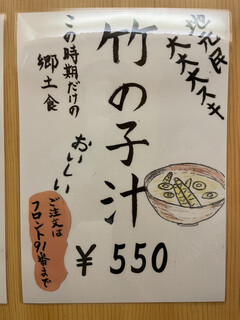 地元民
大大大スキ
竹の子汁
おいしい
この時期だけの
郷土食
ご注文は
フロント91番まで
¥550